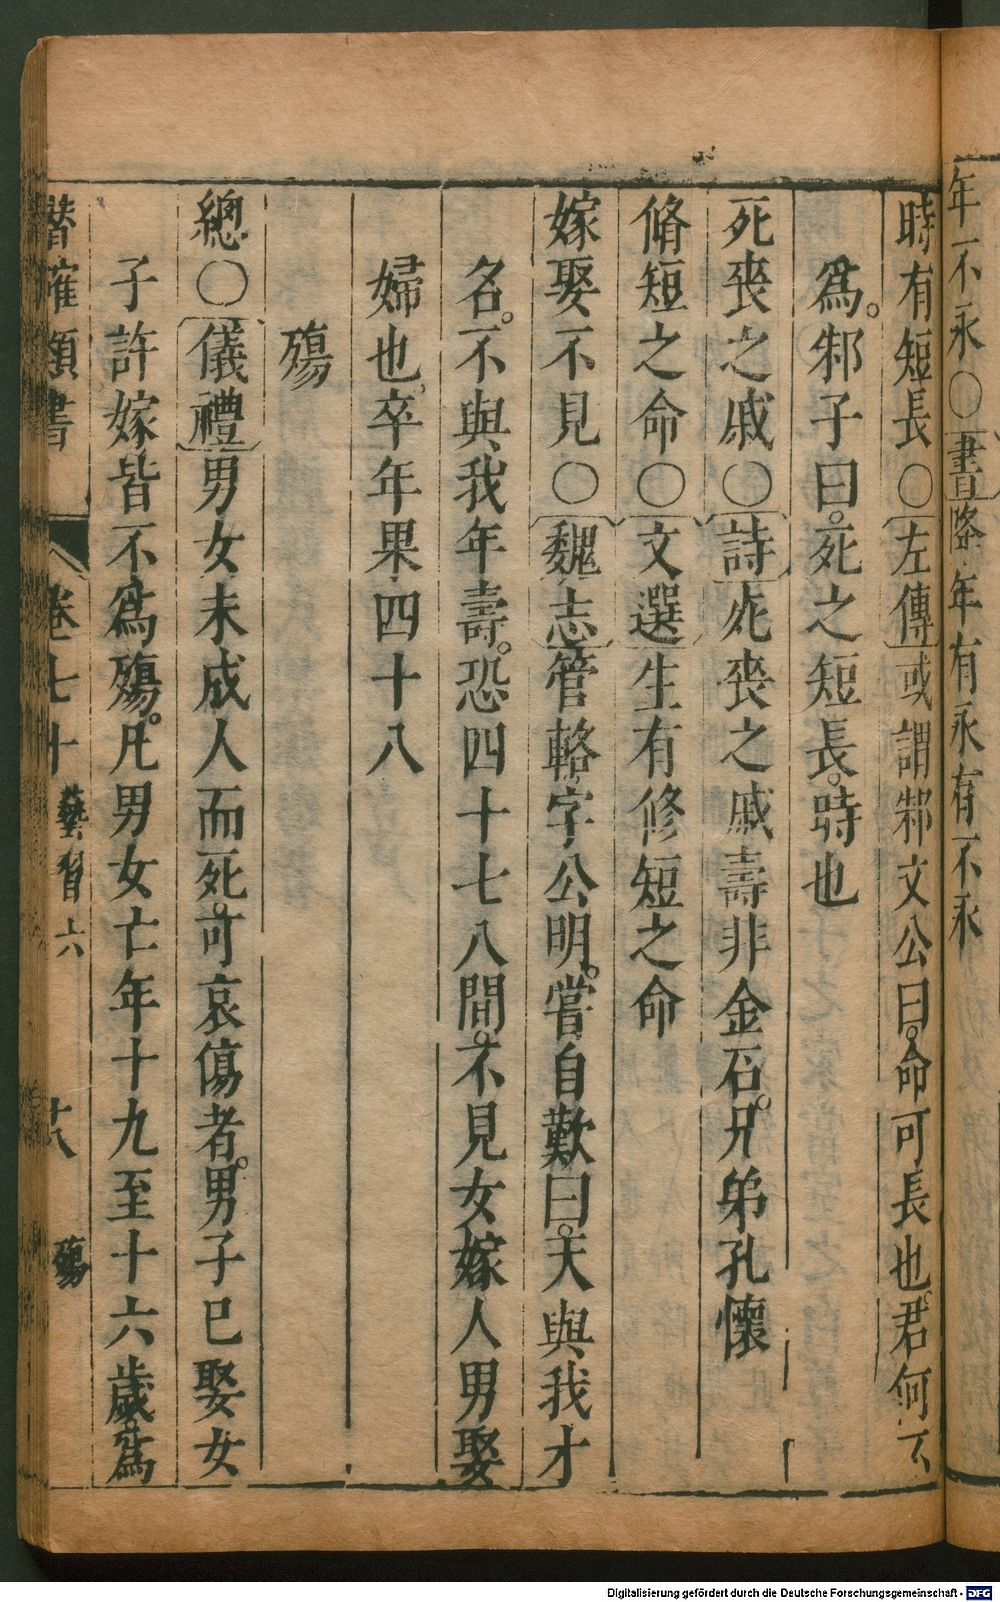 年不永○書降年有永有不永
時有短長○左傳或謂邾文公曰命可長也君何弗
爲邾子曰死之短長時也
死喪之戚○詩死喪之戚壽非金石兄弟孔懷
脩短之命○文選生有修短之命
嫁娶不見○魏志管輅字公明嘗自歎曰天與我才
名不與我年壽恐四十七八間不見女嫁人男娶
婦也卒年果四十八
殤
總○儀禮男女未成人而死可哀傷者男子已娶女
子許嫁皆不爲殤凡男女亡年十九至十六歲爲
潛確類書 卷七十 藝習六 十八 殤
Digitalisierung gefördert durch die Deutsche Forschungsgemeinschaft - DFG